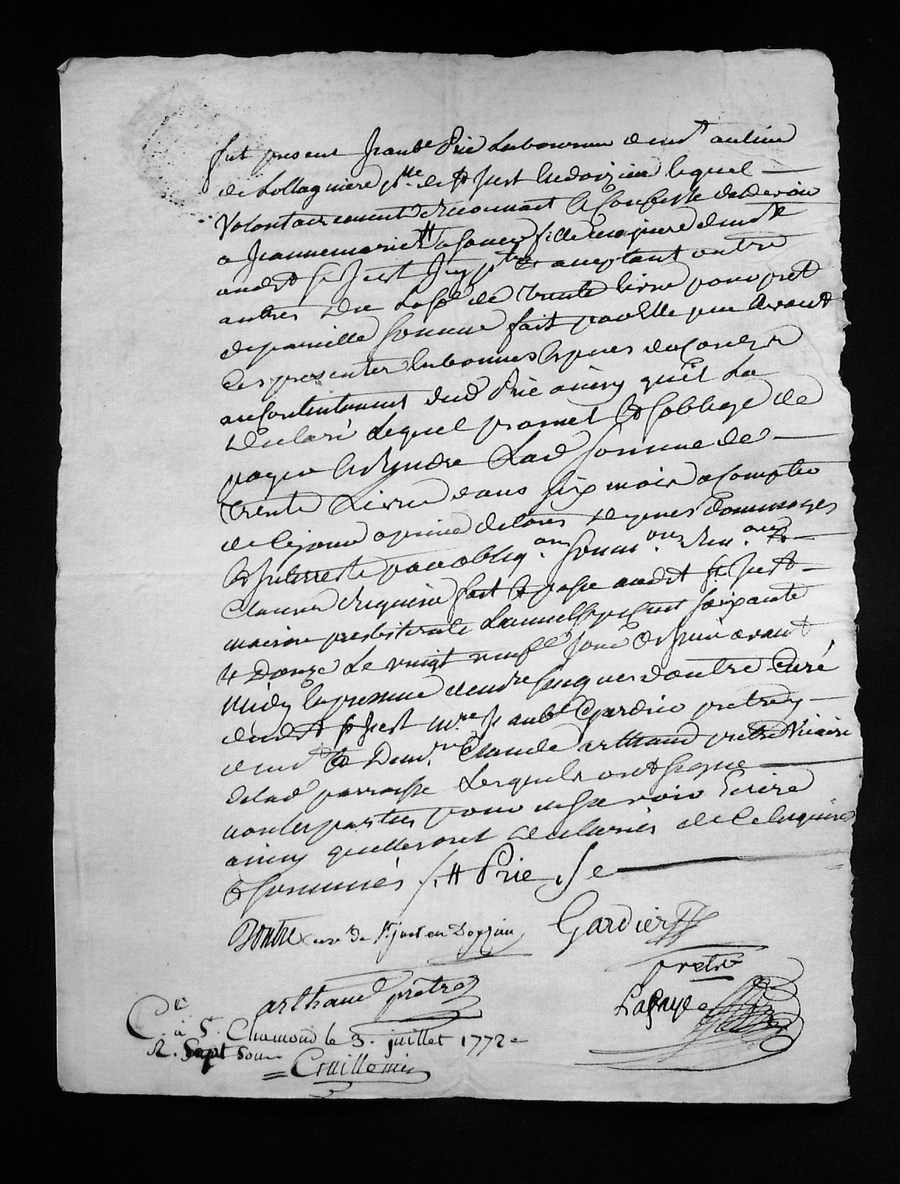 fut present Jean Bte Prie laboureur demt au lieu
de Sollagniere psse de St Just en doizieu lequel
volontairement reconnait & confesse debvoir
a Jeanne marie fille majeure demte
audit St Just acceptant outre
autres de trente livre pour pret
de pareille somme fait par elle avant
ces presentes en bonnes especes de cours
au contentement dud Prie ainsy qu'il la
declaré lequel promet & soblige de
payer & rendre Lad somme de
trente Livre dans six mois a compter
de ce jour a peine de tous depens dommages
& interrests par obligons soumons renons &
clauses requises fait & passé audit St Just
maison presbiterale L'an mil sept cent soixante
& Douze Le vingt neuf jour de juin avant
midy en presence de mre Jacques dontre Curé
dudt St Just mre Jean Bte Gardier pretre
demt & Dem. Claude arthaud pretre Vicaire
de lad parroisse Lesquels ont signé
non les parties pour ne sçavoir Ecrire
ainsy quelles ont declarées de ce enquises
& sommées Prie
Dontre curé de St just en Doyzieu Gardier
pretre
arthaud pretre Lafaye
Cle à St Chamond le 3. juillet 1772
R. Sept sous